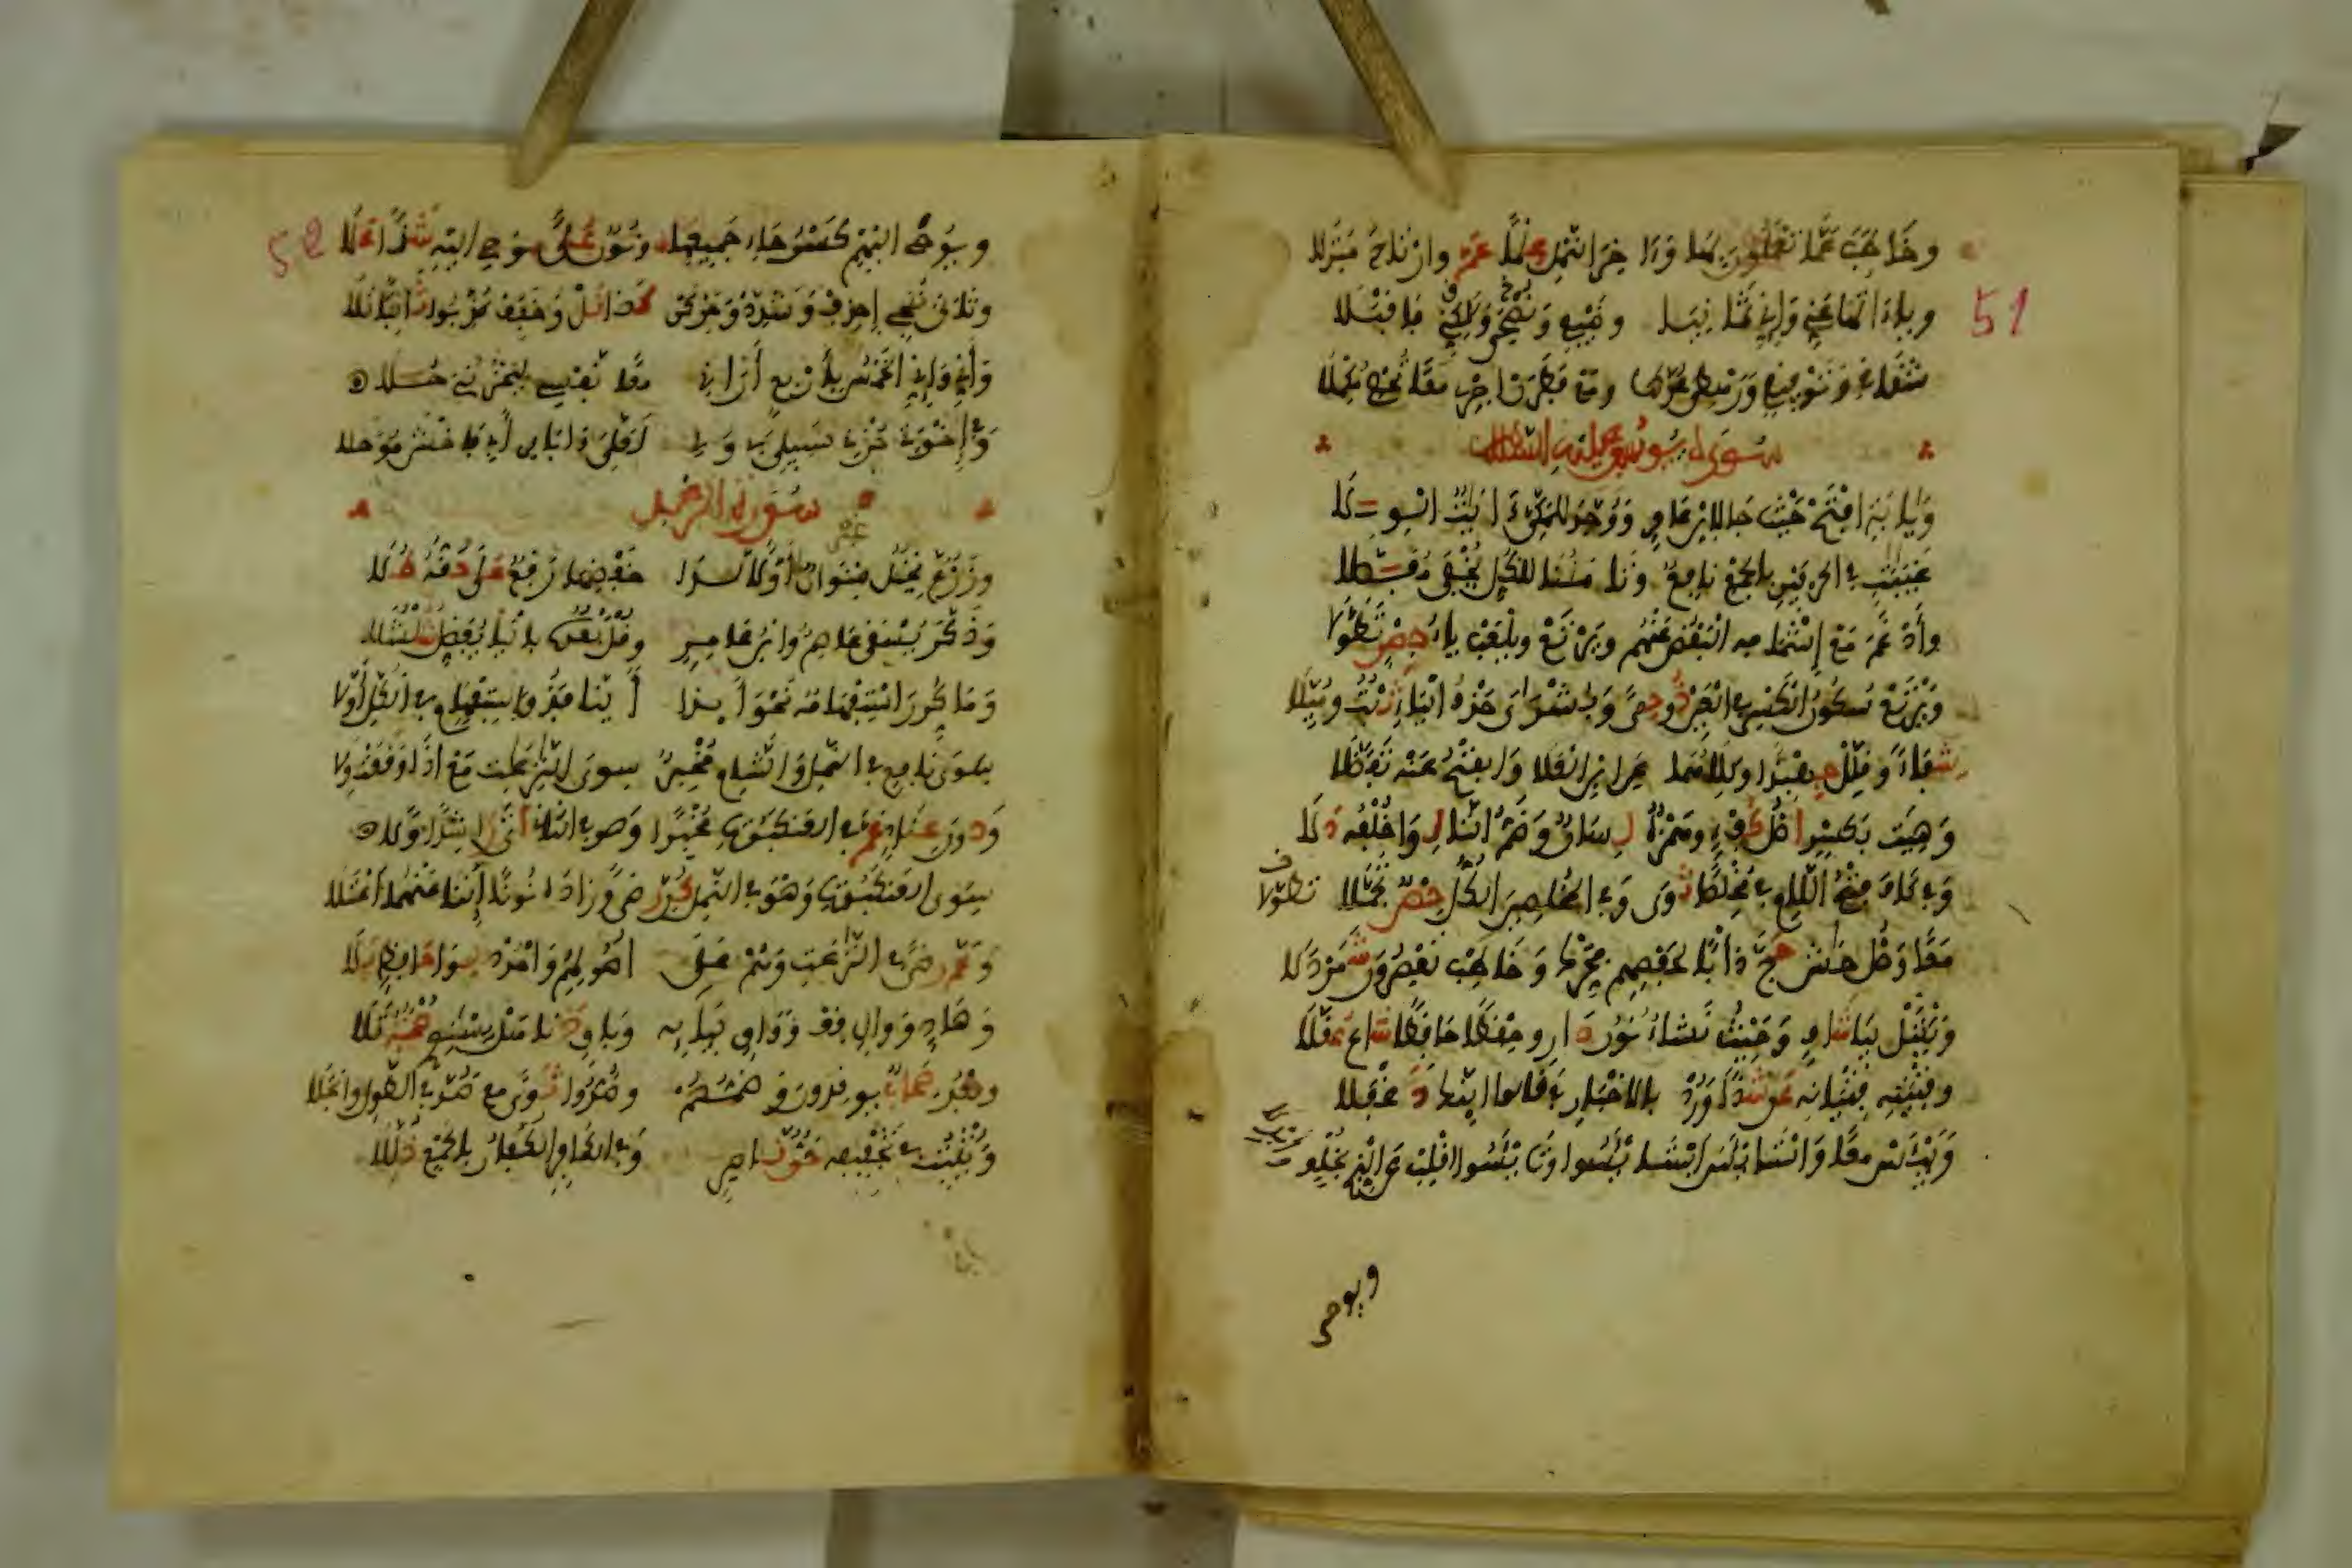 51
وخاطب عما تعملون بها وءا خر النمل علما عم وارتاد منزلا
وياءاتها عني وإني ثمانيا وضيفي ولكني ونصحي فاقبلا
شقاقي وتوفيقي ورهطي عدها ومع فطرن أجري معا تحص مكملا
سورة يوسف عليه السلام
ويا أبت افتح حيث جا لابن عامر ووحد للمكي ءايات الولا
غيابات في الحرفين بالجمع نافع وتأمننا للكل يخفي مفصلا
وأدغم مع إشمامه البعض عنهم ويرتع ويلعب ياء حصن تطولا
ويرتع سكون الكسر في العين ذو حمى وبشراي حذف الياء ثبت وميلا
شفاء وقلل جهبذا وكلاهما عن ابن العلا والفتح عنه تفضلا
وهيت بكسر أصل كفؤ وهمزه لسان وضم التا لوا خلفه دلا
وفي كاف فتح اللام في مخلصا ثوى وفي المخلصين الكل حصن تجملا
معا وصل حاشا حج دأبا لحفصهم فحرك وخاطب تعصرون شمردلا
ونكتل بيا شاف وحيث نشاء نون دار وحفظا حافظا شاع عقلا
وفتيته فتيانه عن شذا ورد بالاخبار في قالوا أئنك دغفلا
ويوحى
52
ويوحى إليهم كسر حاء جميعها ونون علا يوحى إليه شذا علا
وثاني ننجي احذف وشدد وحركن كذا نل وخفف كذبوا ثابتا تلا
وأني وإني الخمس ربي أربع أراني معا نفسي ليحزنني حلا
وفي إخوتي حزني سبيلي بي ولي لعلي ءاباءي أبي فاخش موحلا
سورة الرعد
وزرع نخيل غير صنوان أولا لدى خفضها رفع على حقه طلا
وذكر يسقى عاصم وابن عامر وقل بعده باليا يفضل شلشلا
وما كرر استفهامه نحو أئذا أئنا فذو استفهام الكل أولا
سوى نافع في النمل والشام مخبر سوى النازعات مع إذا وقعت ولا
ودون عناد عم في العنكبوت مخبرا وهو في الثاني أتى راشدا ولا
سوى العنكبوت وهو في النمل كن رضا وزاداه نونا إننا عنهما اعتلا
وعم رضا في النازعات وهم على أصولهم وامدد لوا حافظ بلا
وهاد ووال قف وواق بيائه وباق دنا هل يستوي صحبة تلا
وبعد صحاب يوقدون وضمهم وصدوا ثوى مع صد في الطول وانجلا
ويثبت في تخفيفه حق ناصر وفي الكافر الكفار بالجمع ذللا